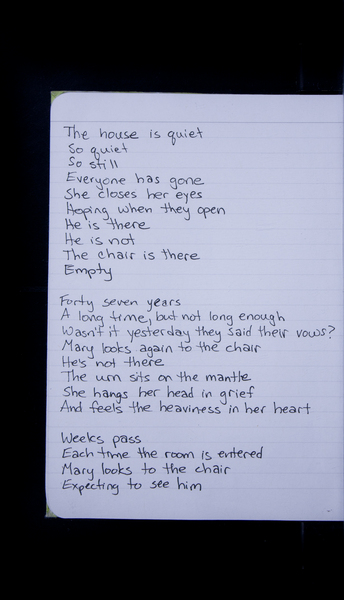 The house is quiet
So quiet
So still
Everyone has gone
She closes her eyes
Hoping when they open
He is there
He is not
The chair is there
Empty
Forty seven years
A long time, but not long enough
Wasn't it yesterday they said their vows?
Mary looks again to the chair
He's not there
The urn sits on the mantle
She hangs her head in grief
And feels the heaviness in her heart
Weeks pass
Each time the room is entered
Mary looks to the chair
Expecting to see him